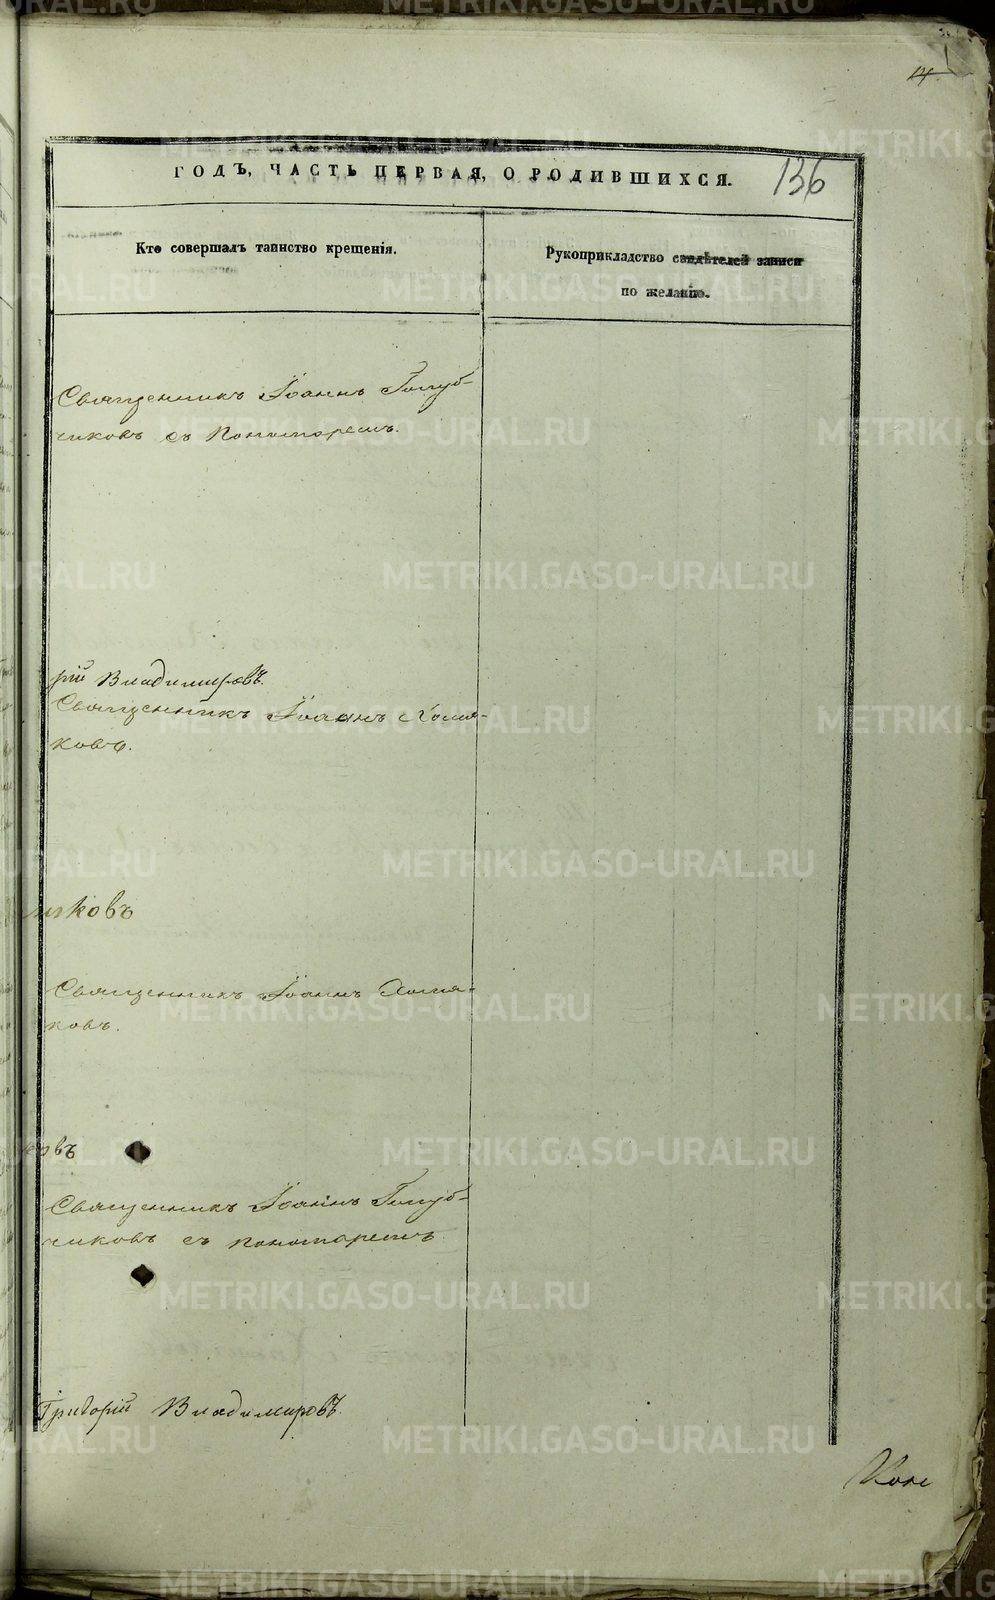 14
136
ГОДЪ, ЧАСТЬ ПЕРВАЯ, О РОДИВШИХСЯ.
Кто совершалъ таинство крещенія.
Рукоприкладство свидѣтелей записи
по желанію.
Священникъ Іоаннъ Голуб-
чиковъ съ Пономаремъ.
рій Владимировъ.
Священникъ Іоаннъ Хомя-
ковъ.
ковъ
Священникъ Іоаннъ Хомя-
ковъ.
овъ
Священникъ Іоаннъ Голуб-
чиковъ съ пономаремъ
Григорій Владимировъ.
METRIKI.GASO-URAL.RU